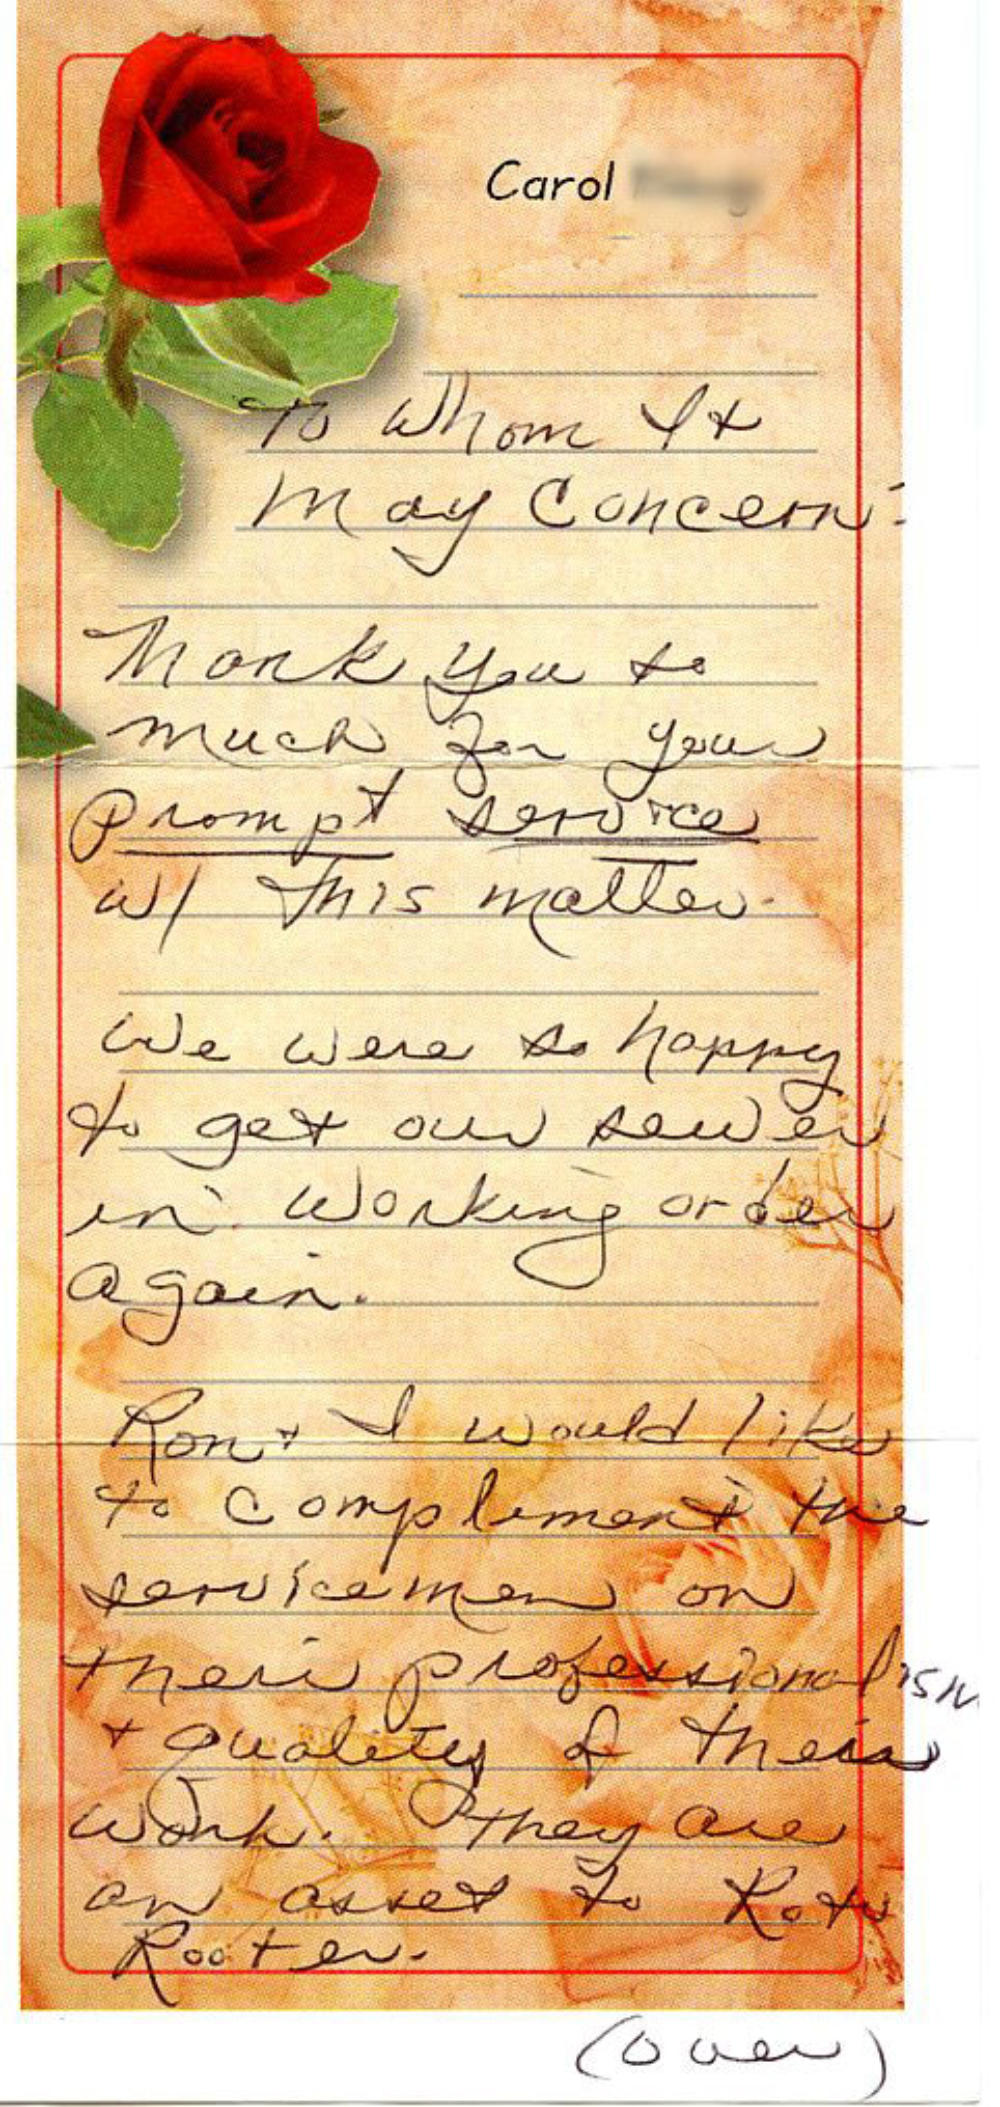 Carol
To Whom It
May Concern:
Thank you so
much for your
prompt service
w/ this matter.
We were so happy
to get our sewer
in working order
again.
Ron + I would like
to compliment the
servicemen on
their professionalism
+ quality of their
work. They are
an asset to Roto
Rooter.
(over)